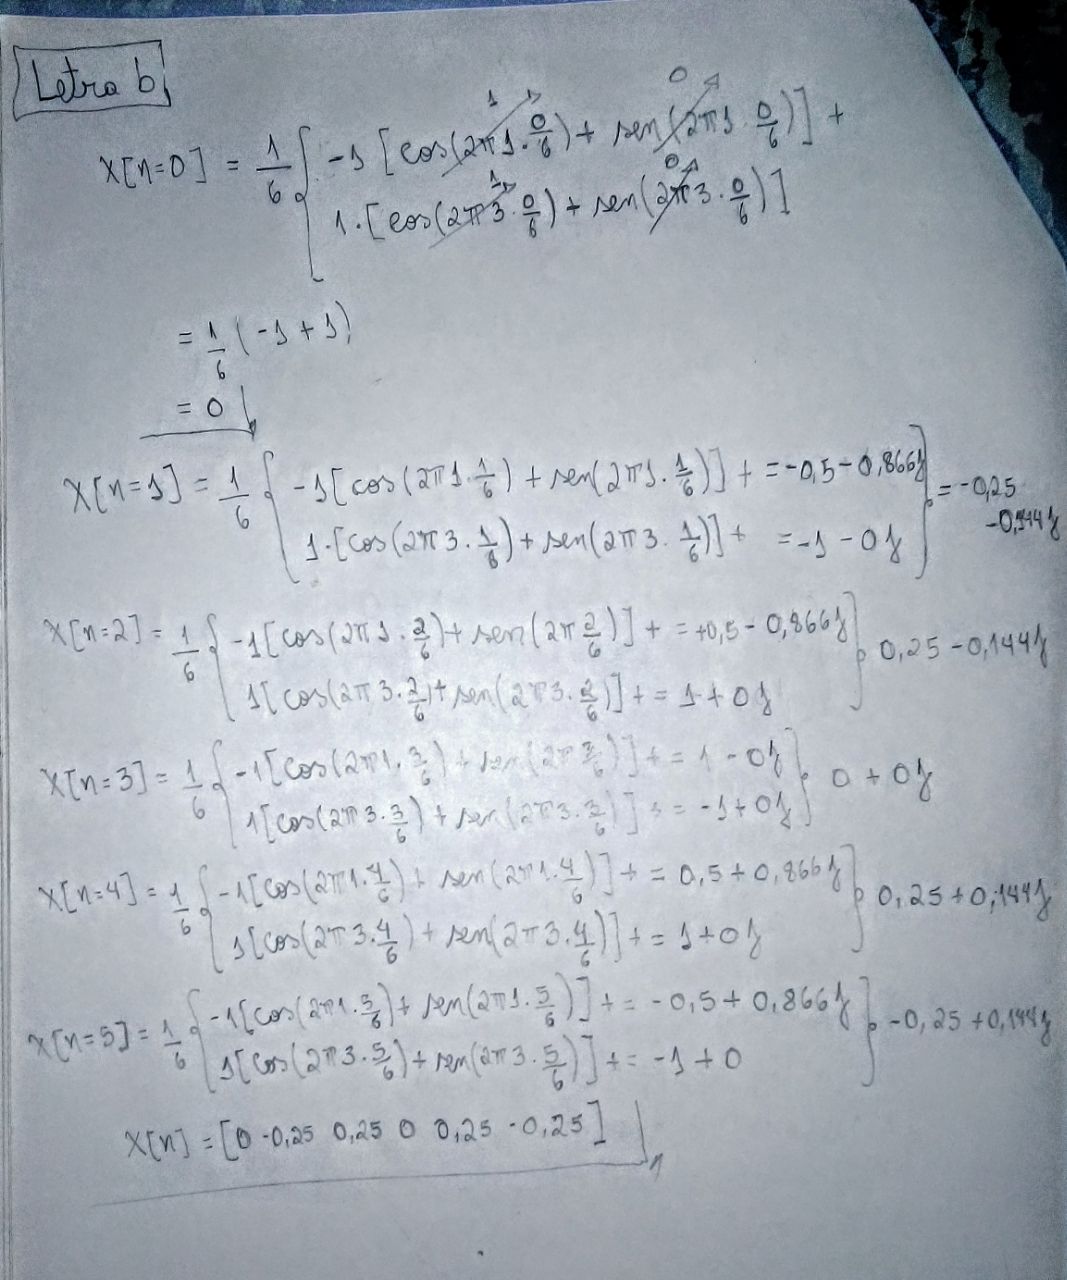 Letra b
1 0
X[n=0] = 1/6 { -1 [cos(2π1·0/6) + sen(2π1·0/6)] +
1 0
1·[cos(2π3·0/6) + sen(2π3·0/6)]
= 1/6 (-1 + 1)
= 0
X[n=1] = 1/6 { -1[cos(2π1·1/6) + sen(2π1·1/6)] + = -0,5 - 0,866j } = -0,25
1·[cos(2π3·1/6) + sen(2π3·1/6)] + = -1 - 0j -0,144j
X[n=2] = 1/6 { -1[cos(2π1·2/6) + sen(2π2/6)] + = +0,5 - 0,866j } 0,25 - 0,144j
1[cos(2π3·2/6) + sen(2π3·2/6)] + = 1 + 0j
X[n=3] = 1/6 { -1[cos(2π1·3/6) + sen(2π3/6)] + = 1 - 0j } 0 + 0j
1[cos(2π3·3/6) + sen(2π3·3/6)] + = -1 + 0j
X[n=4] = 1/6 { -1[cos(2π1·4/6) + sen(2π1·4/6)] + = 0,5 + 0,866j } 0,25 + 0,144j
1[cos(2π3·4/6) + sen(2π3·4/6)] + = 1 + 0j
X[n=5] = 1/6 { -1[cos(2π1·5/6) + sen(2π1·5/6)] + = -0,5 + 0,866j } -0,25 + 0,144j
1[cos(2π3·5/6) + sen(2π3·5/6)] + = -1 + 0
X[n] = [0 -0,25 0,25 0 0,25 -0,25]